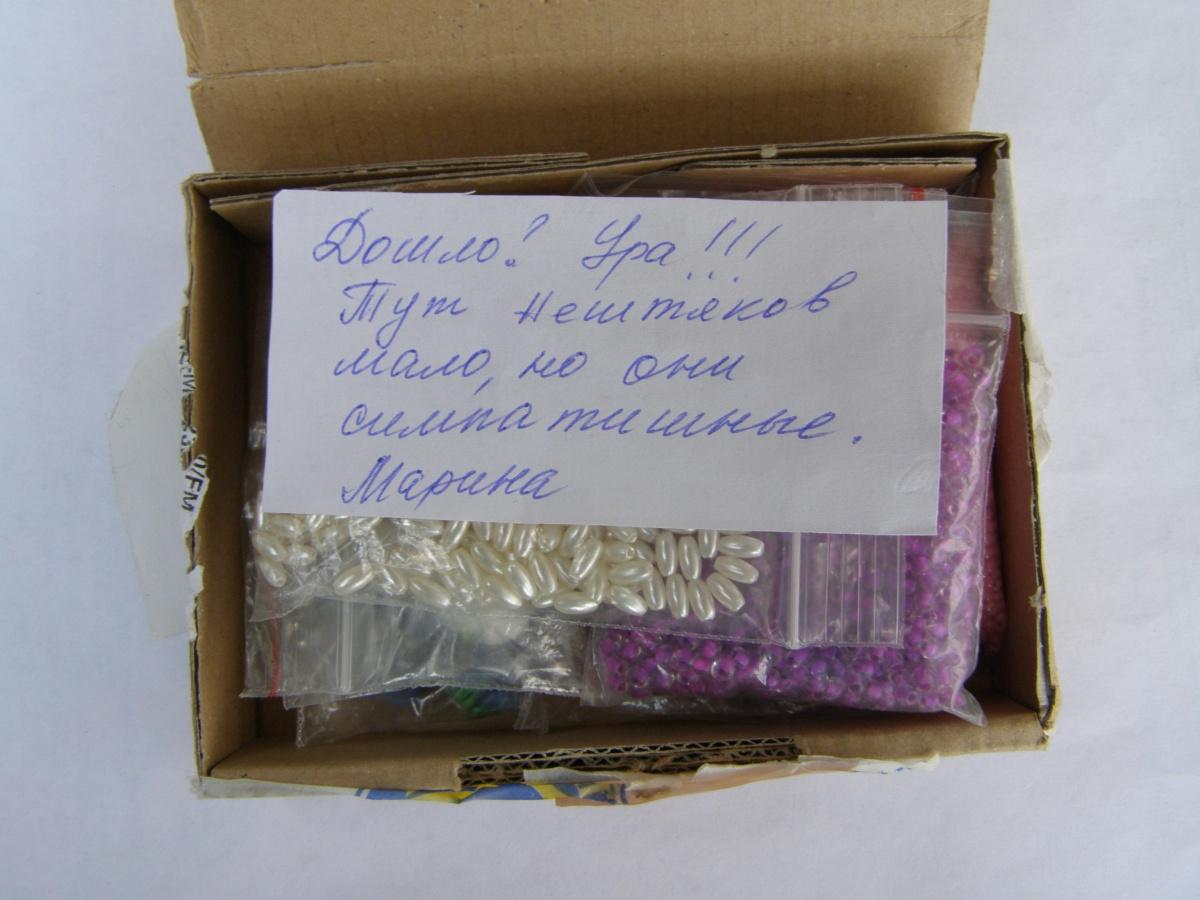 Дошло? Ура!!!
Тут нештяков
мало, но они
симпатишные.
Марина